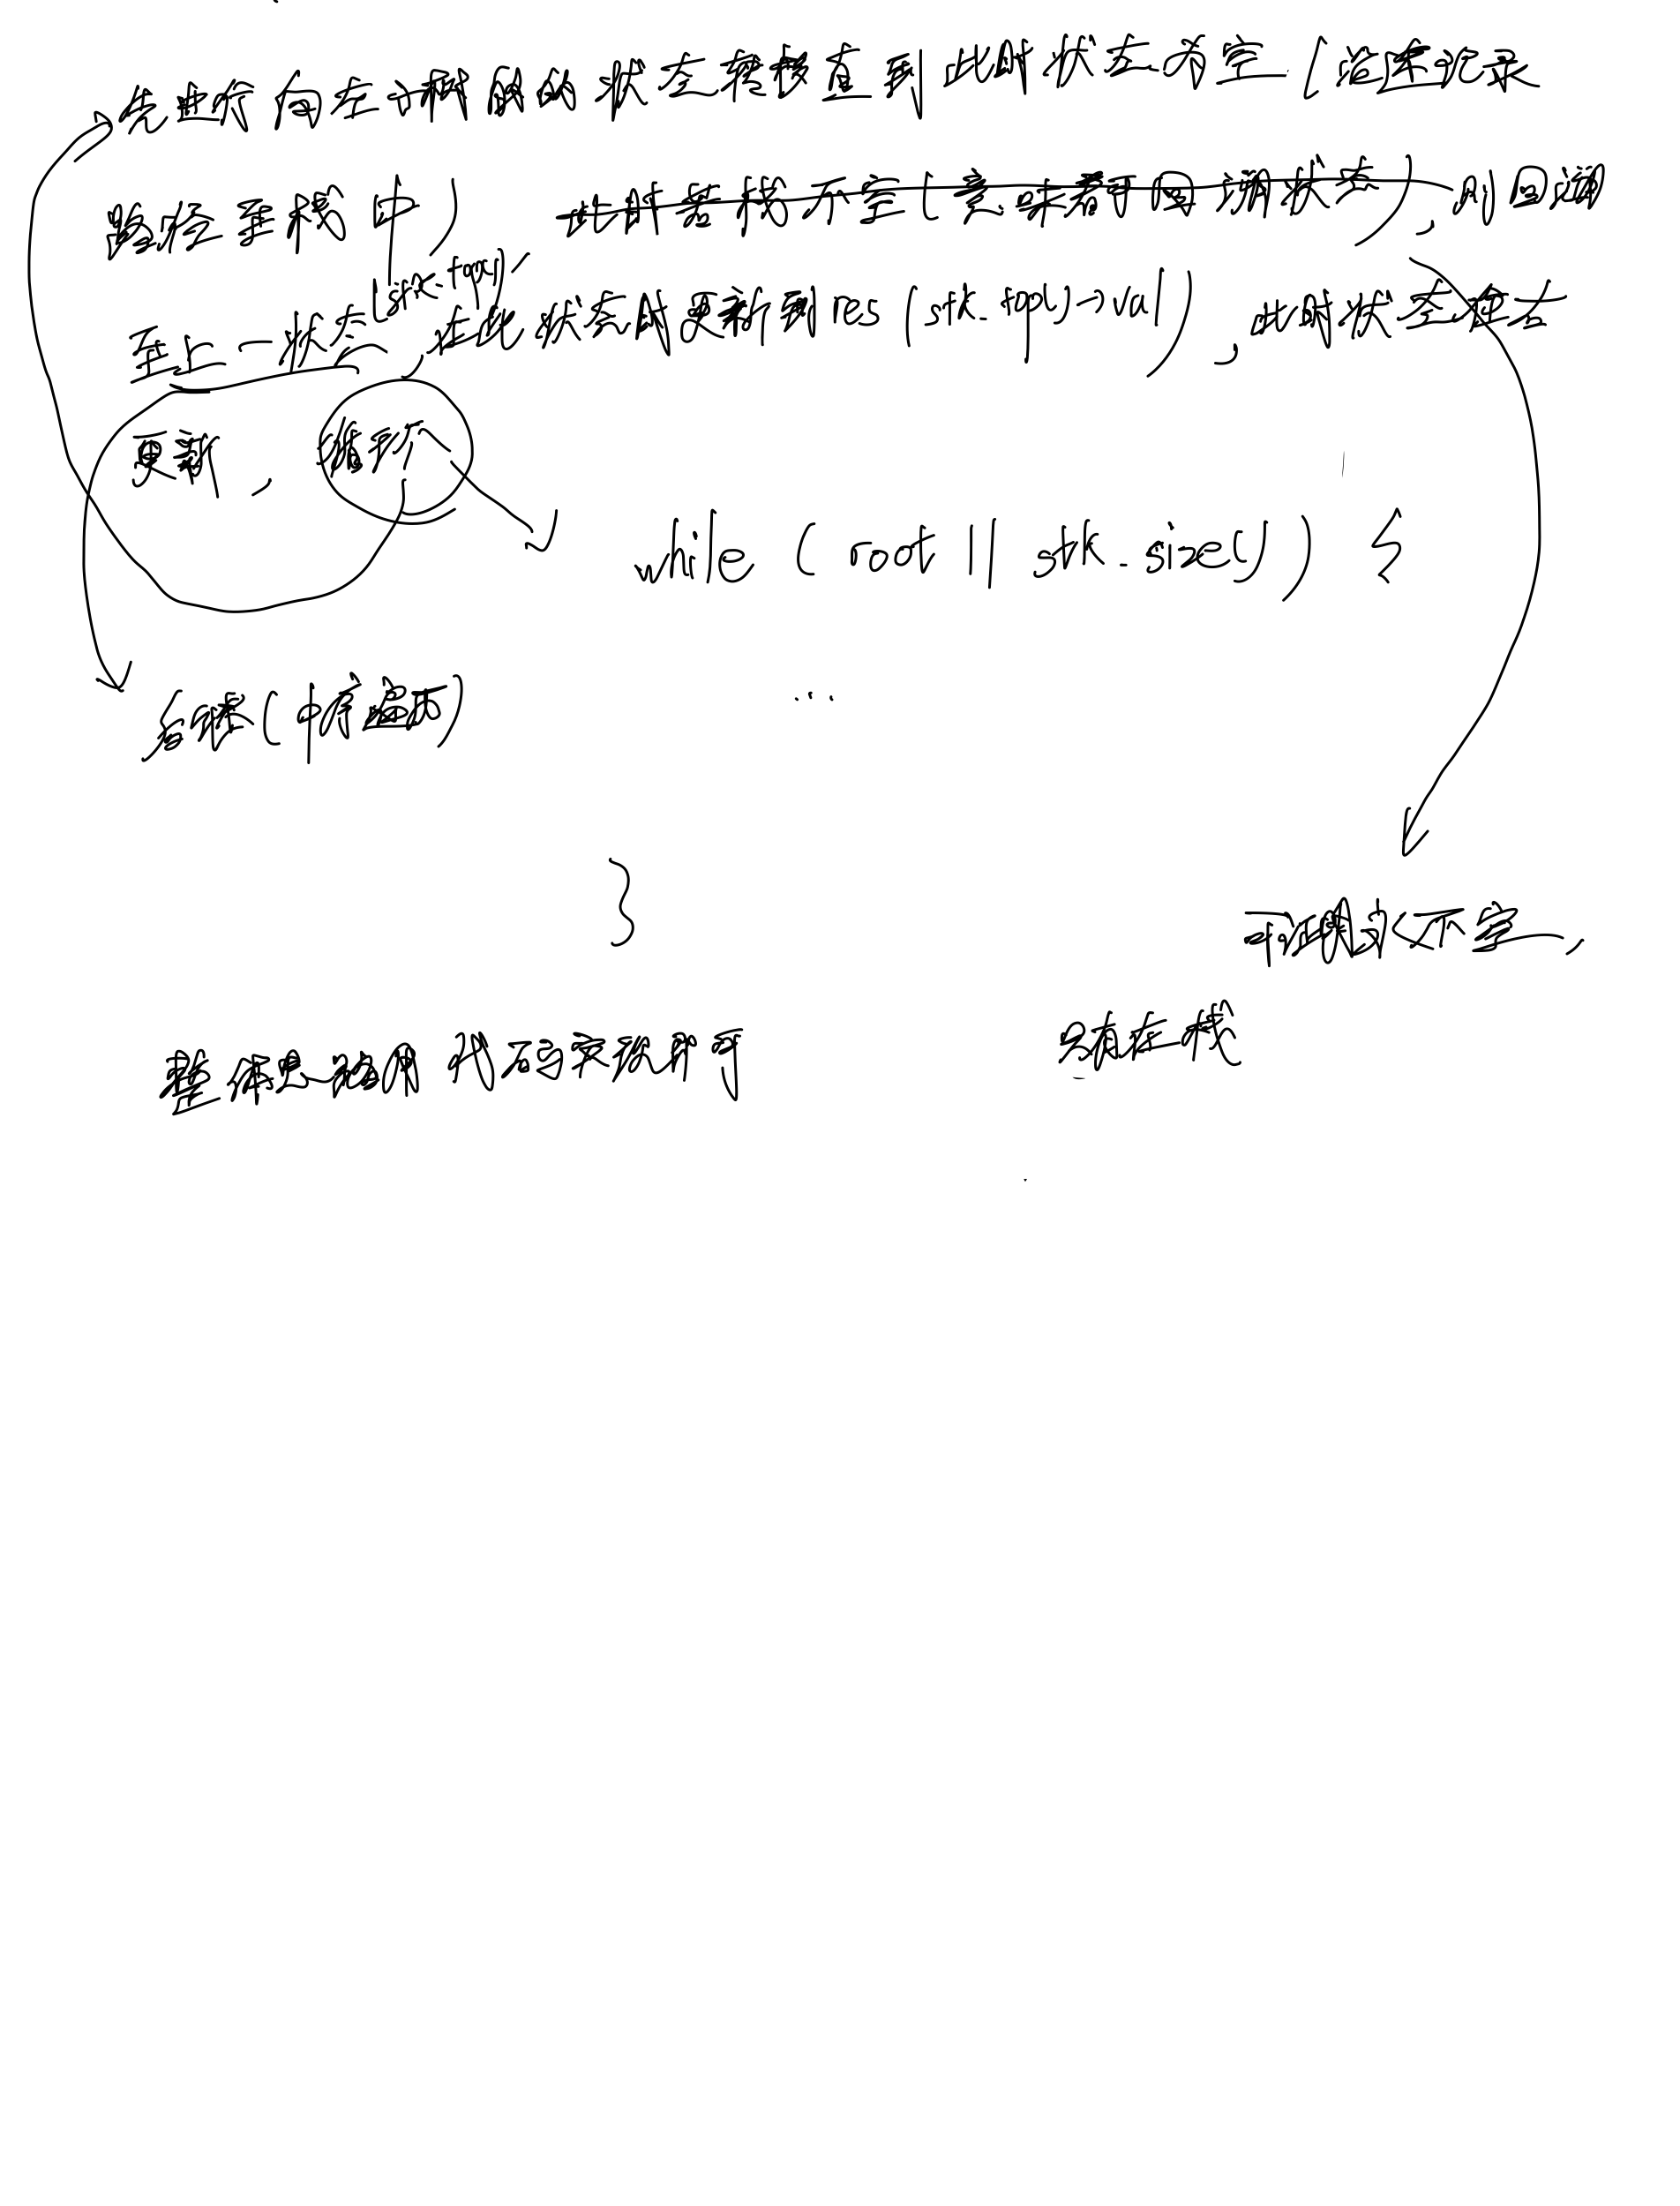 先进行向左子树的状态转移直到此时状态为空(沿途记录
路径至栈中) 此时若栈不空(意味着可回溯状态),则回溯
至上一状态(stk.top()),在此状态时更新到res(stk.top()->val),此时状态往右
更新,循环
while (root || stk.size()) {
右继(中序遍历)
...
}
不空,
只有在栈
整体思路用代码实现即可